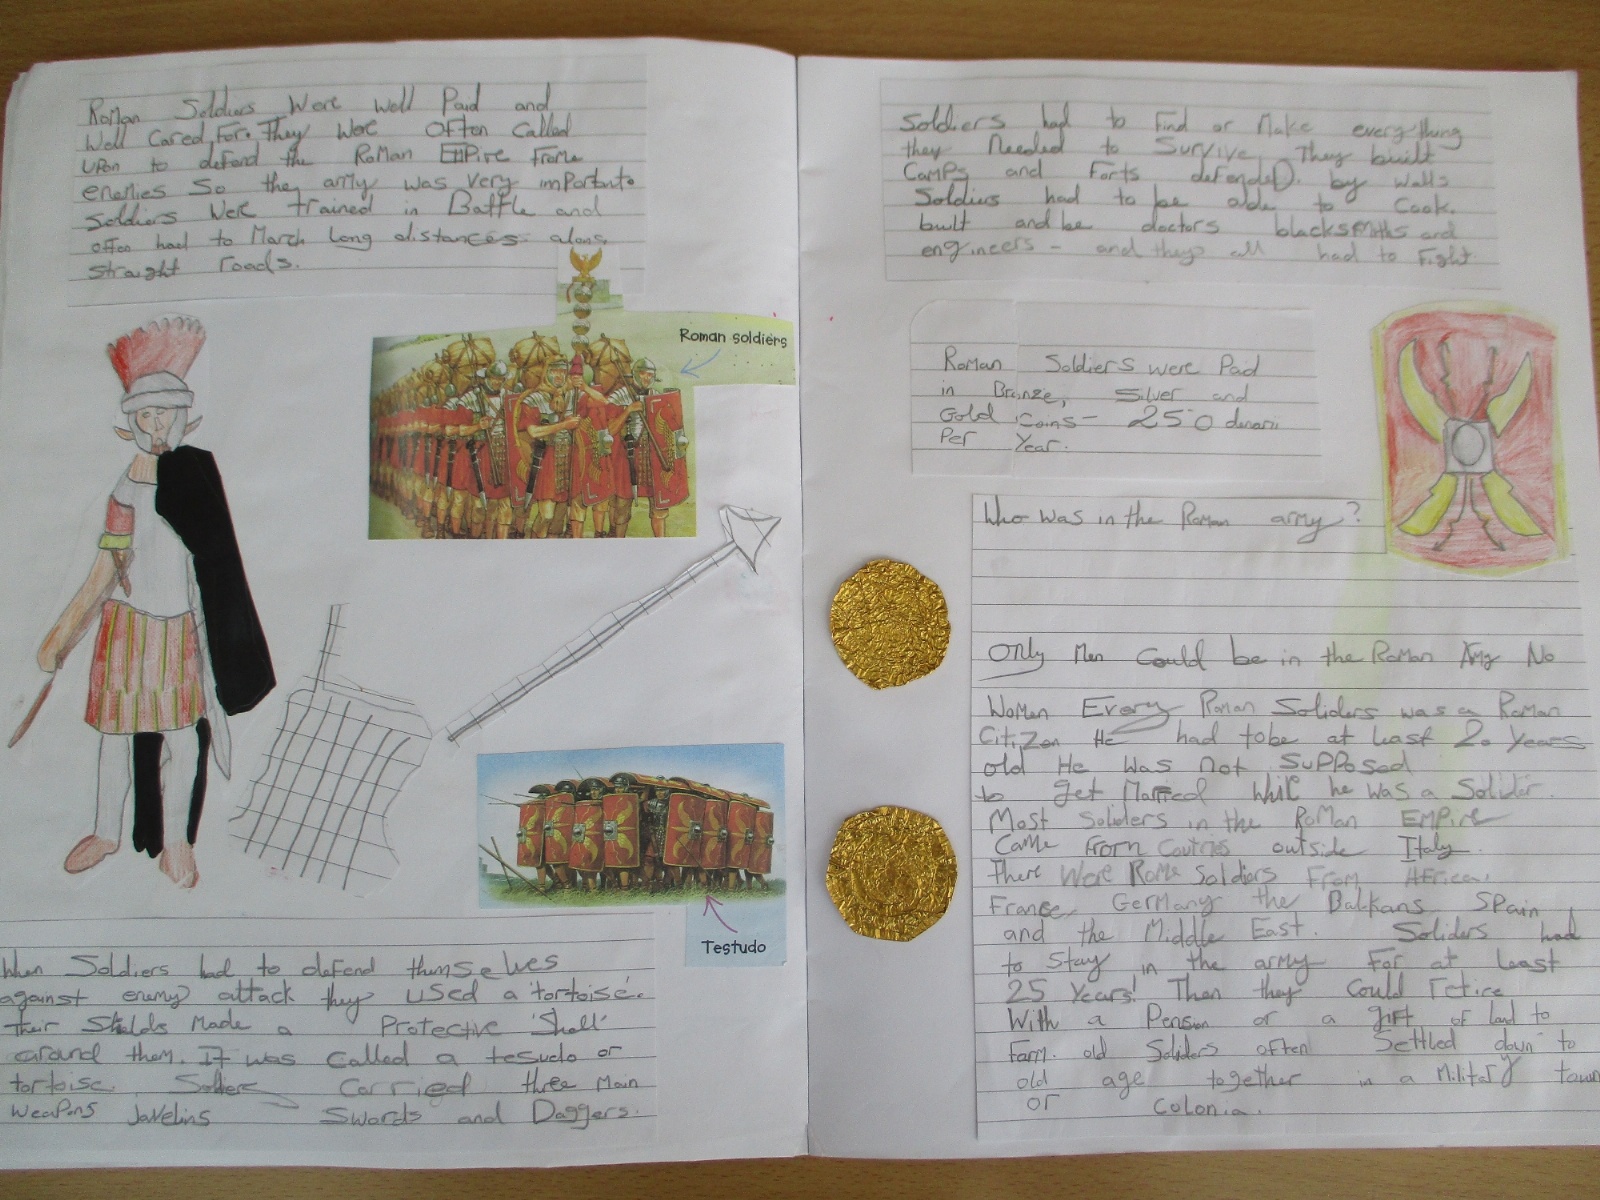 Roman Soldiers Were Well Paid and
Well Cared For. They Were Often Called
upon to defend the Roman EMPire frome
enemies So the army was very important.
Soldiers Were trained in Battle and
often had to March Long distances along
straight roads.
Roman soldiers
Testudo
When Soldiers had to defend themselves
against enemy attack they used a 'tortoise'.
their Shields Made a Protective 'Shell'
around them. It was called a tesudo or
tortoise. Soldiers Carried three Main
weapons Javelins Swords and Daggers.
Soldiers had to Find or Make everything
they Needed to Survive, They built
Camps and Forts defended. by walls
Soldiers had to be able to Cook.
built and be doctors blacksmiths and
engineers - and they all had to Fight
Roman Soldiers were Paid
in Bronze, Silver and
Gold Coins - 250 denarii
Per Year.
Who was in the Roman army?
Only Men Could be in the Roman Army No
Women Every Roman Soliders was a Roman
Citizen He had to be at least 20 years
old He was not Supposed
to get Married while he was a Solider.
Most Soliders in the Roman EMPire
Came From Coutries outside Italy.
There Were Rome Soldiers From Africa,
France, Germany the Balkans Spain,
and the Middle East. Soliders had
to Stay in the army For at Least
25 Years! Then they Could retire
With a Pension or a gift of land to
Farm. old Soliders often Settled down to
old age together in a Military town
or Colonia.